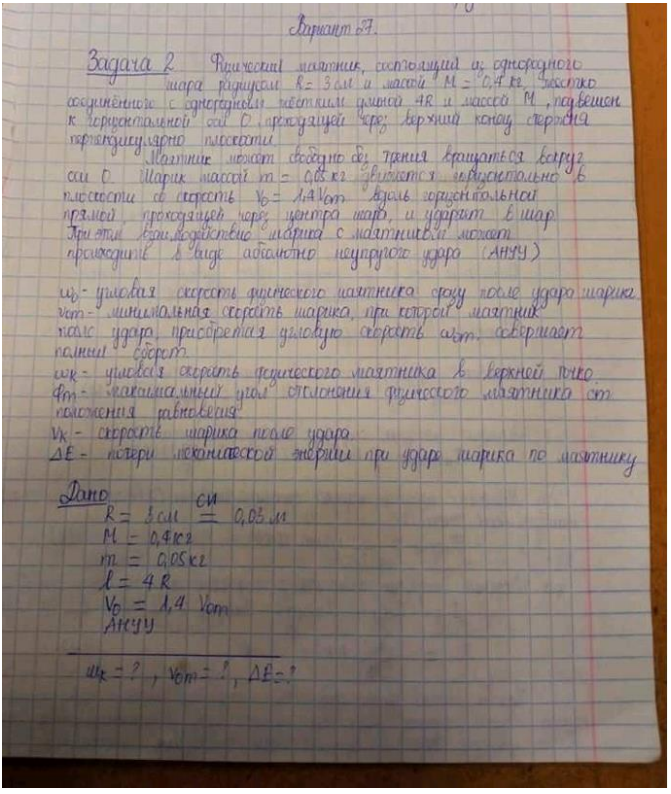 Вариант 27.
Задача 2 Физический маятник, состоящий из однородного
шара радиусом R = 3 см и массой M = 0,4 кг, жестко
соединённого с однородным жестким длиной 4R и массой M, подвешен
к горизонтальной оси O проходящей через верхний конец стержня
перпендикулярно плоскости
Маятник может свободно без трения вращаться вокруг
оси O. Шарик массой m = 0,05 кг движется горизонтально в
плоскости со скорость V₀ = 1,4 V₀m вдоль горизонтальной
прямой проходящей через центра шара, и ударит в шар
При этом взаимодействие шарика с маятником может
проходить в виде абсолютно неупругого удара (АНУУ)
ω₀ - угловая скорость физического маятника сразу после удара шарика.
v₀m - минимальная скорость шарика, при которой маятник
после удара, приобретая угловую скорость ω₀m, совершает
полный оборот
ωк - угловая скорость физического маятника в верхней точке.
φm - максимальный угол отклонения физического маятника от
положения равновесия
Vк - скорость шарика после удара.
ΔE - потери механической энергии при ударе шарика по маятнику
Дано
СИ
R = 3 см = 0,03 м
M = 0,4 кг
m = 0,05 кг
l = 4 R
V₀ = 1,4 V₀m
АНУУ
ωк = ? , V₀m = ? , ΔE = ?